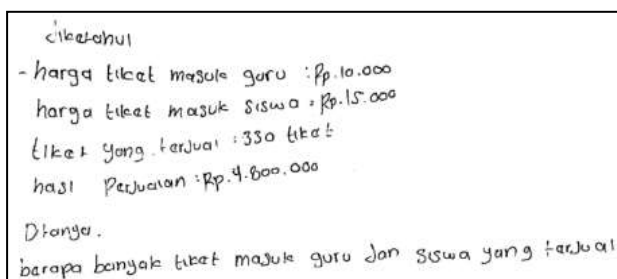 diketahui
- harga tiket masuk guru : Rp.10.000
harga tiket masuk siswa : Rp.15.000
tiket yang terjual : 330 tiket
hasi Perjualan : Rp.4.800.000
Dtanya.
barapa banyak tiket masuk guru dan siswa yang terjual